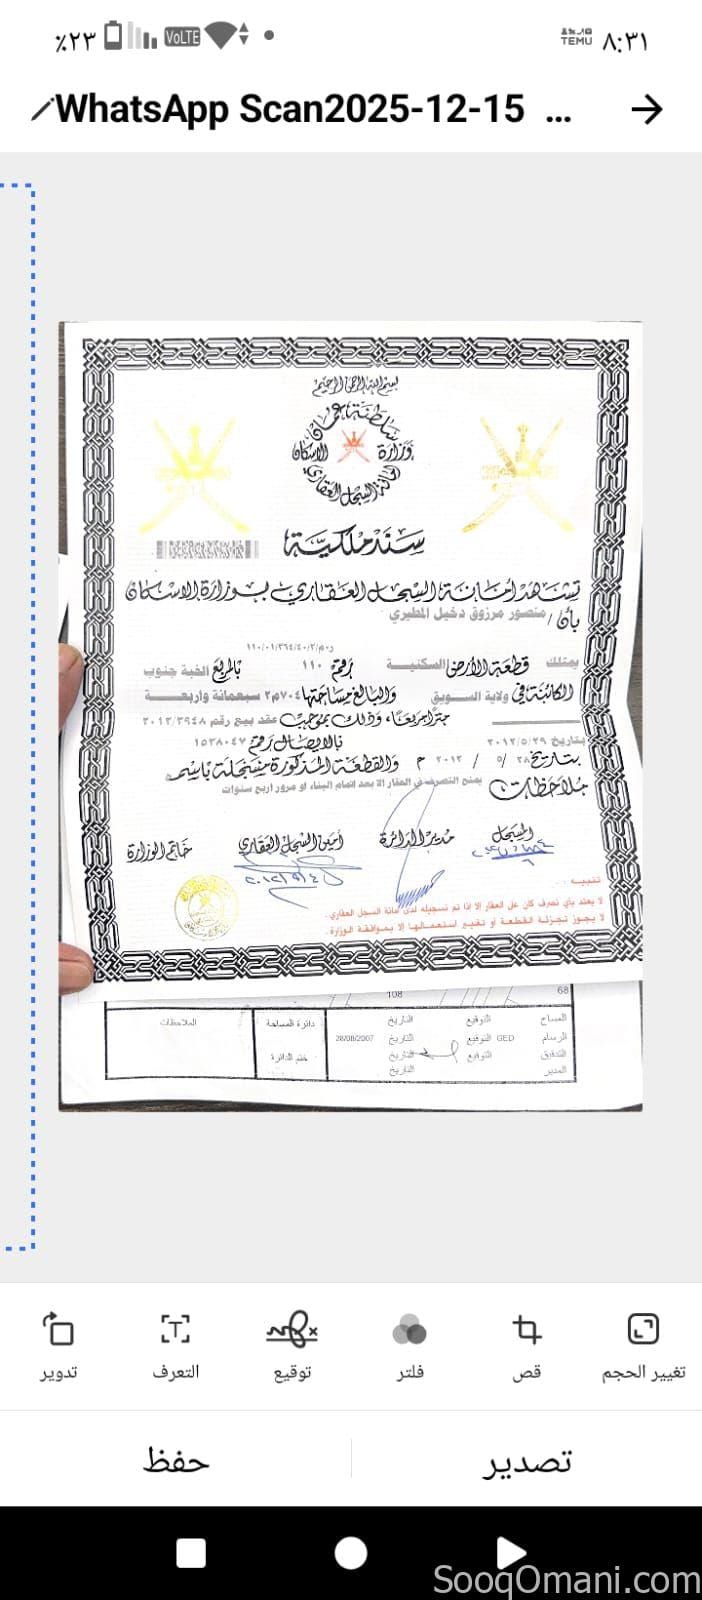 ٨:٣١
TEMU
VoLTE
٪٢٣
WhatsApp Scan2025-12-15 ...
بسم الله الرحمن الرحيم
سلطنة عمان
وزارة الاسكان
أمانة السجل العقاري
سند ملكية
تشهد أمانة السجل العقاري بوزارة الاسكان
بأن / منصور مرزوق دخيل المطيري
يمتلك قطعة الأرض السكنية رقم ١١٠ بالمربع الخبة جنوب
الكائنة في ولاية السويق والبالغ مساحتها ٧٠٤م٢ سبعمائة واربعة
متراً مربعاً، وذلك بموجب عقد بيع رقم ٢٠١٢/٣٩٤٨
بتاريخ ٢٠١٢/٥/٢٩ بالايصال رقم ١٥٣٨٠٤٧
بتاريخ ٢٨ / ٥ / ٢٠١٢ م والقطعة المذكورة مسجلة باسمه
ملاحظات: يمنع التصرف في العقار الا بعد اتمام البناء او مرور اربع سنوات
المسجل مدير الدائرة أمين السجل العقاري خاتم الوزارة
تنبيه :
لا يعتد بأي تصرف كان على العقار الا اذا تم تسجيله لدى أمانة السجل العقاري.
لا يجوز تجزئة القطعة او تغيير استعمالها إلا بموافقة الوزارة.
68 108
المساح التوقيع التاريخ دائرة المساحة الملاحظات
الرسام GED التوقيع التاريخ 28/08/2007
التدقيق التوقيع التاريخ ختم الدائرة
المدير التاريخ
تغيير الحجم
قص
فلتر
توقيع
التعرف
تدوير
تصدير
حفظ
SooqOmani.com